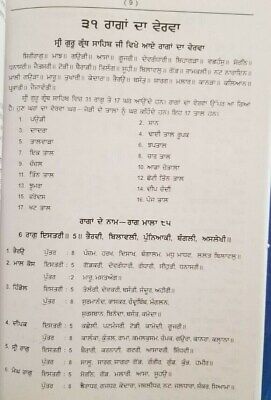 ( 9 )
੩੧ ਰਾਗਾਂ ਦਾ ਵੇਰਵਾ
ਸ੍ਰੀ ਗੁਰੂ ਗ੍ਰੰਥ ਸਾਹਿਬ ਜੀ ਵਿਖੇ ਆਏ ਰਾਗਾਂ ਦਾ ਵੇਰਵਾ
ਸਿਰੀਰਾਗੁ॥ ਮਾਝ॥ ਗਉੜੀ॥ ਆਸਾ॥ ਗੂਜਰੀ॥ ਦੇਵਗੰਧਾਰੀ॥ ਬਿਹਾਗੜਾ॥ ਵਡਹੰਸੁ॥ ਸੋਰਠਿ॥
ਧਨਾਸਰੀ॥ ਜੈਤਸਰੀ॥ ਟੋਡੀ॥ ਬੈਰਾੜੀ॥ ਤਿਲੰਗ॥ ਸੂਹੀ॥ ਬਿਲਾਵਲੁ॥ ਗੋਂਡ॥ ਰਾਮਕਲੀ॥ ਨਟ ਨਾਰਾਇਨ॥
ਮਾਲੀ ਗਉੜਾ॥ ਮਾਰੂ॥ ਤੁਖਾਰੀ॥ ਕੇਦਾਰਾ॥ ਭੈਰਉ॥ ਬਸੰਤੁ॥ ਸਾਰਗ॥ ਮਲਾਰ॥ ਕਾਨੜਾ॥ ਕਲਿਆਨ॥
ਪ੍ਰਭਾਤੀ॥ ਜੈਜਾਵੰਤੀ॥
ਸ੍ਰੀ ਗੁਰੂ ਗ੍ਰੰਥ ਸਾਹਿਬ ਵਿਚ 31 ਰਾਗੁ ਤੇ 17 ਘਰ ਆਉਂਦੇ ਹਨ। ਰਾਗਾਂ ਦਾ ਵੇਰਵਾ ਉੱਪਰ ਆ ਗਿਆ
ਹੈ। ਹੁਣ ਘਰਾਂ ਦਾ ਵੇਰਵਾ ਘਰ - ਤਾਲਾਂ ਨੂੰ ਘਰ ਕਹਿੰਦੇ ਹਨ। ਇਹ 17 ਤਾਲ ਹਨ।
1. ਪਉੜੀ
2. ਸਾਨ
3. ਦਾਦਰਾ
4. ਢਾਈ ਤਾਲ ਰੂਪਕ
5. ਤਾਲਵਾੜਾ
6. ਝਪਤਾਲ
7. ਇਕ ਤਾਲ
8. ਚਾਰ ਤਾਲ
9. ਚੰਚਲ
10. ਆੜਾ ਚੌਤਾਲਾ
11. ਤਿੰਨ ਤਾਲ
12. ਛੋਟੀ ਤਿੰਨ ਤਾਲ
13. ਝੂਮਰਾ
14. ਦੀਪ ਚੰਦੀ
15. ਫਰੋਦਸ
16. ਪੰਜ ਤਾਲ
17. ਖਟ ਤਾਲ
ਰਾਗਾਂ ਦੇ ਨਾਮ—ਰਾਗ ਮਾਲਾ ੮੫
6 ਰਾਗੁ ਇਸਤਰੀ॥ 5॥ ਭੈਰਵੀ, ਬਿਲਾਵਲੀ, ਪੁੰਨਿਆਕੀ, ਬੰਗਲੀ, ਅਸਲੇਖੀ॥
1 ਭੈਰਉ ਪੁੱਤਰ : 8 ਪੰਚਮ, ਹਰਖ, ਦਿਸਾਖ, ਬੰਗਾਲਮ, ਮਧੁ, ਮਾਧਵ, ਲਲਤ ਬਿਲਾਵਲ।
2 ਮਾਲ ਕੌਸ ਇਸਤਰੀ : 5 ਗੋਂਡਕਰੀ, ਦੇਵਗੰਧਾਰੀ, ਗੰਧਾਰੀ, ਸੀਹੁਤੀ, ਧਨਾਸਰੀ।
ਪੁੱਤਰ : 8
3 ਹਿੰਡੋਲ ਇਸਤਰੀ : 5 ਤੇਲੰਗੀ, ਦੇਵਕਰੀ, ਬਸੰਤੀ, ਸੰਦੂਰ, ਅਹੀਰੀ।
ਪੁੱਤਰ : 8 ਸੁਰਮਾਨੰਦ, ਭਾਸਕਰ, ਚੰਦ੍ਰਬਿੰਬ, ਮੰਗਲਨ,
ਸਰਸਬਾਨ ਬਿਨੋਦ, ਬਸੰਤ, ਕਮੋਦਾ।
4 ਦੀਪਕ ਇਸਤਰੀ : 5 ਕਛੇਲੀ, ਪਟਮੰਜਰੀ, ਟੋਡੀ, ਕਾਮੋਦੀ, ਗੂਜਰੀ।
ਪੁੱਤਰ : 8 ਕਾਲੰਕਾ, ਕੁੰਤਲ, ਰਾਮਾ, ਕਮਲਕੁਸਮ, ਚੰਪਕ, ਗਉਰਾ, ਕਾਨਰਾ, ਕਲਾਨਾ।
5 ਸ੍ਰੀ ਰਾਗੁ ਇਸਤਰੀ : 5 ਬੈਰਾਰੀ, ਕਰਨਾਟੀ, ਗਵਰੀ, ਆਸਾਵਰੀ, ਸਿੰਧਵੀ।
ਪੁੱਤਰ : 8 ਸਾਲੂ, ਸਾਰਗ, ਸਾਗਰਾ, ਗੋਂਡ, ਗੰਭੀਰ, ਗੁੰਡ, ਕੁੰਭ, ਹਮੀਰ।
6 ਮੇਘ ਰਾਗੁ ਇਸਤਰੀ : 5 ਸੋਰਠਿ, ਗੋਂਡ, ਮਲਾਰੀ, ਆਸਾ, ਸੂਹਉ।
ਪੁੱਤਰ : 8 ਬੈਰਾਧਰ, ਗਜਧਰ, ਕੇਦਾਰਾ, ਜਬਲੀਧਰ, ਨਟ, ਜਲਧਾਰਾ, ਸੰਕਰ, ਸਿਆਮਾ।